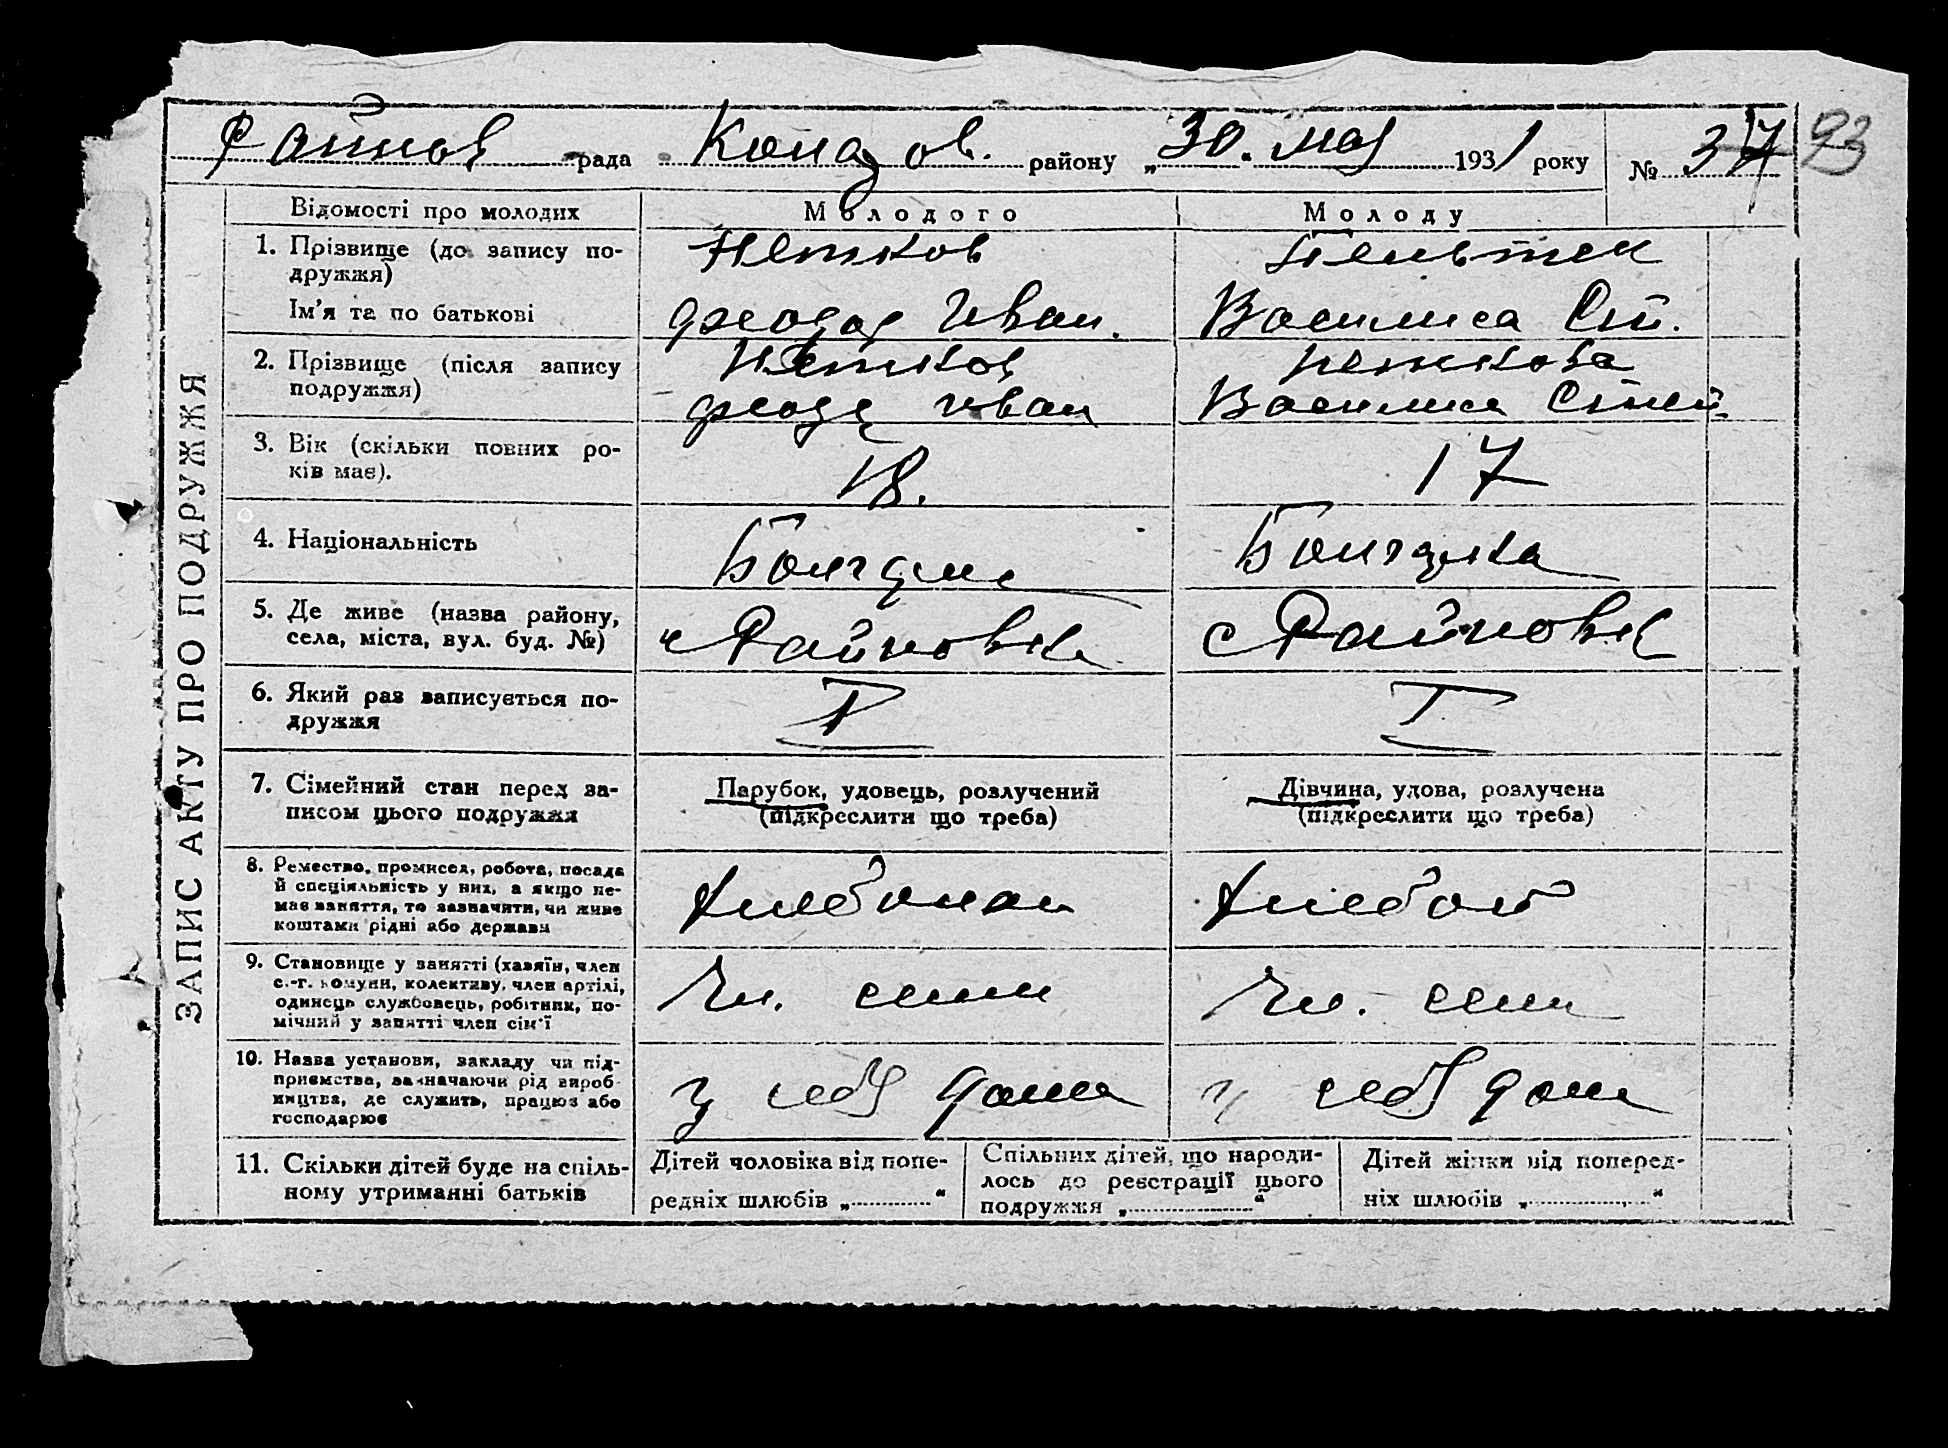 Райнов рада Колар ов. району „30. мая 1931 року № 37 93
ЗАПИС АКТУ ПРО ПОДРУЖЖЯ
Відомості про молодих Молодого Молоду
1. Прізвище (до запису по-
дружжя) Петков
Ім'я та по батькові Иван. Василиса Ст.
2. Прізвище (після запису Петков Петкова
подружжя) Иван Василиса Степ.
3. Вік (скільки повних ро-
ків має). 18. 17
4. Національність Болгарин Болгарка
5. Де живе (назва району,
села, міста, вул. буд. №) с Райновка с Райновка
6. Який раз записується по- I I
дружжя
7. Сімейний стан перед за- Парубок, удовець, розлучений Дівчина, удова, розлучена
писом цього подружжя (підкреслити що треба) (підкреслити що треба)
8. Ремество, промисел, робота, посада
й спеціяльність у них, а якщо не-
має заняття, то зазначити, чи живе
коштами рідні або держави
9. Становище у занятті (хазяїн, член
с.-г. комуни, колективу, член артілі, Чл. семи Чл. семи
одинець службовець, робітник, по-
мічний у занятті член сім'ї
10. Назва установи, закладу чи під-
приємства, зазначаючи рід вироб- у себя дома у себя дома
ництва, де служить, працює або
господарює
11. Скільки дітей буде на спіль-
ному утриманні батьків
Дітей чоловіка від попе-
редніх шлюбів „ “
Спільних дітей, що народи-
лось до реєстрації цього
подружжя „ “
Дітей жінки від поперед-
ніх шлюбів „ “